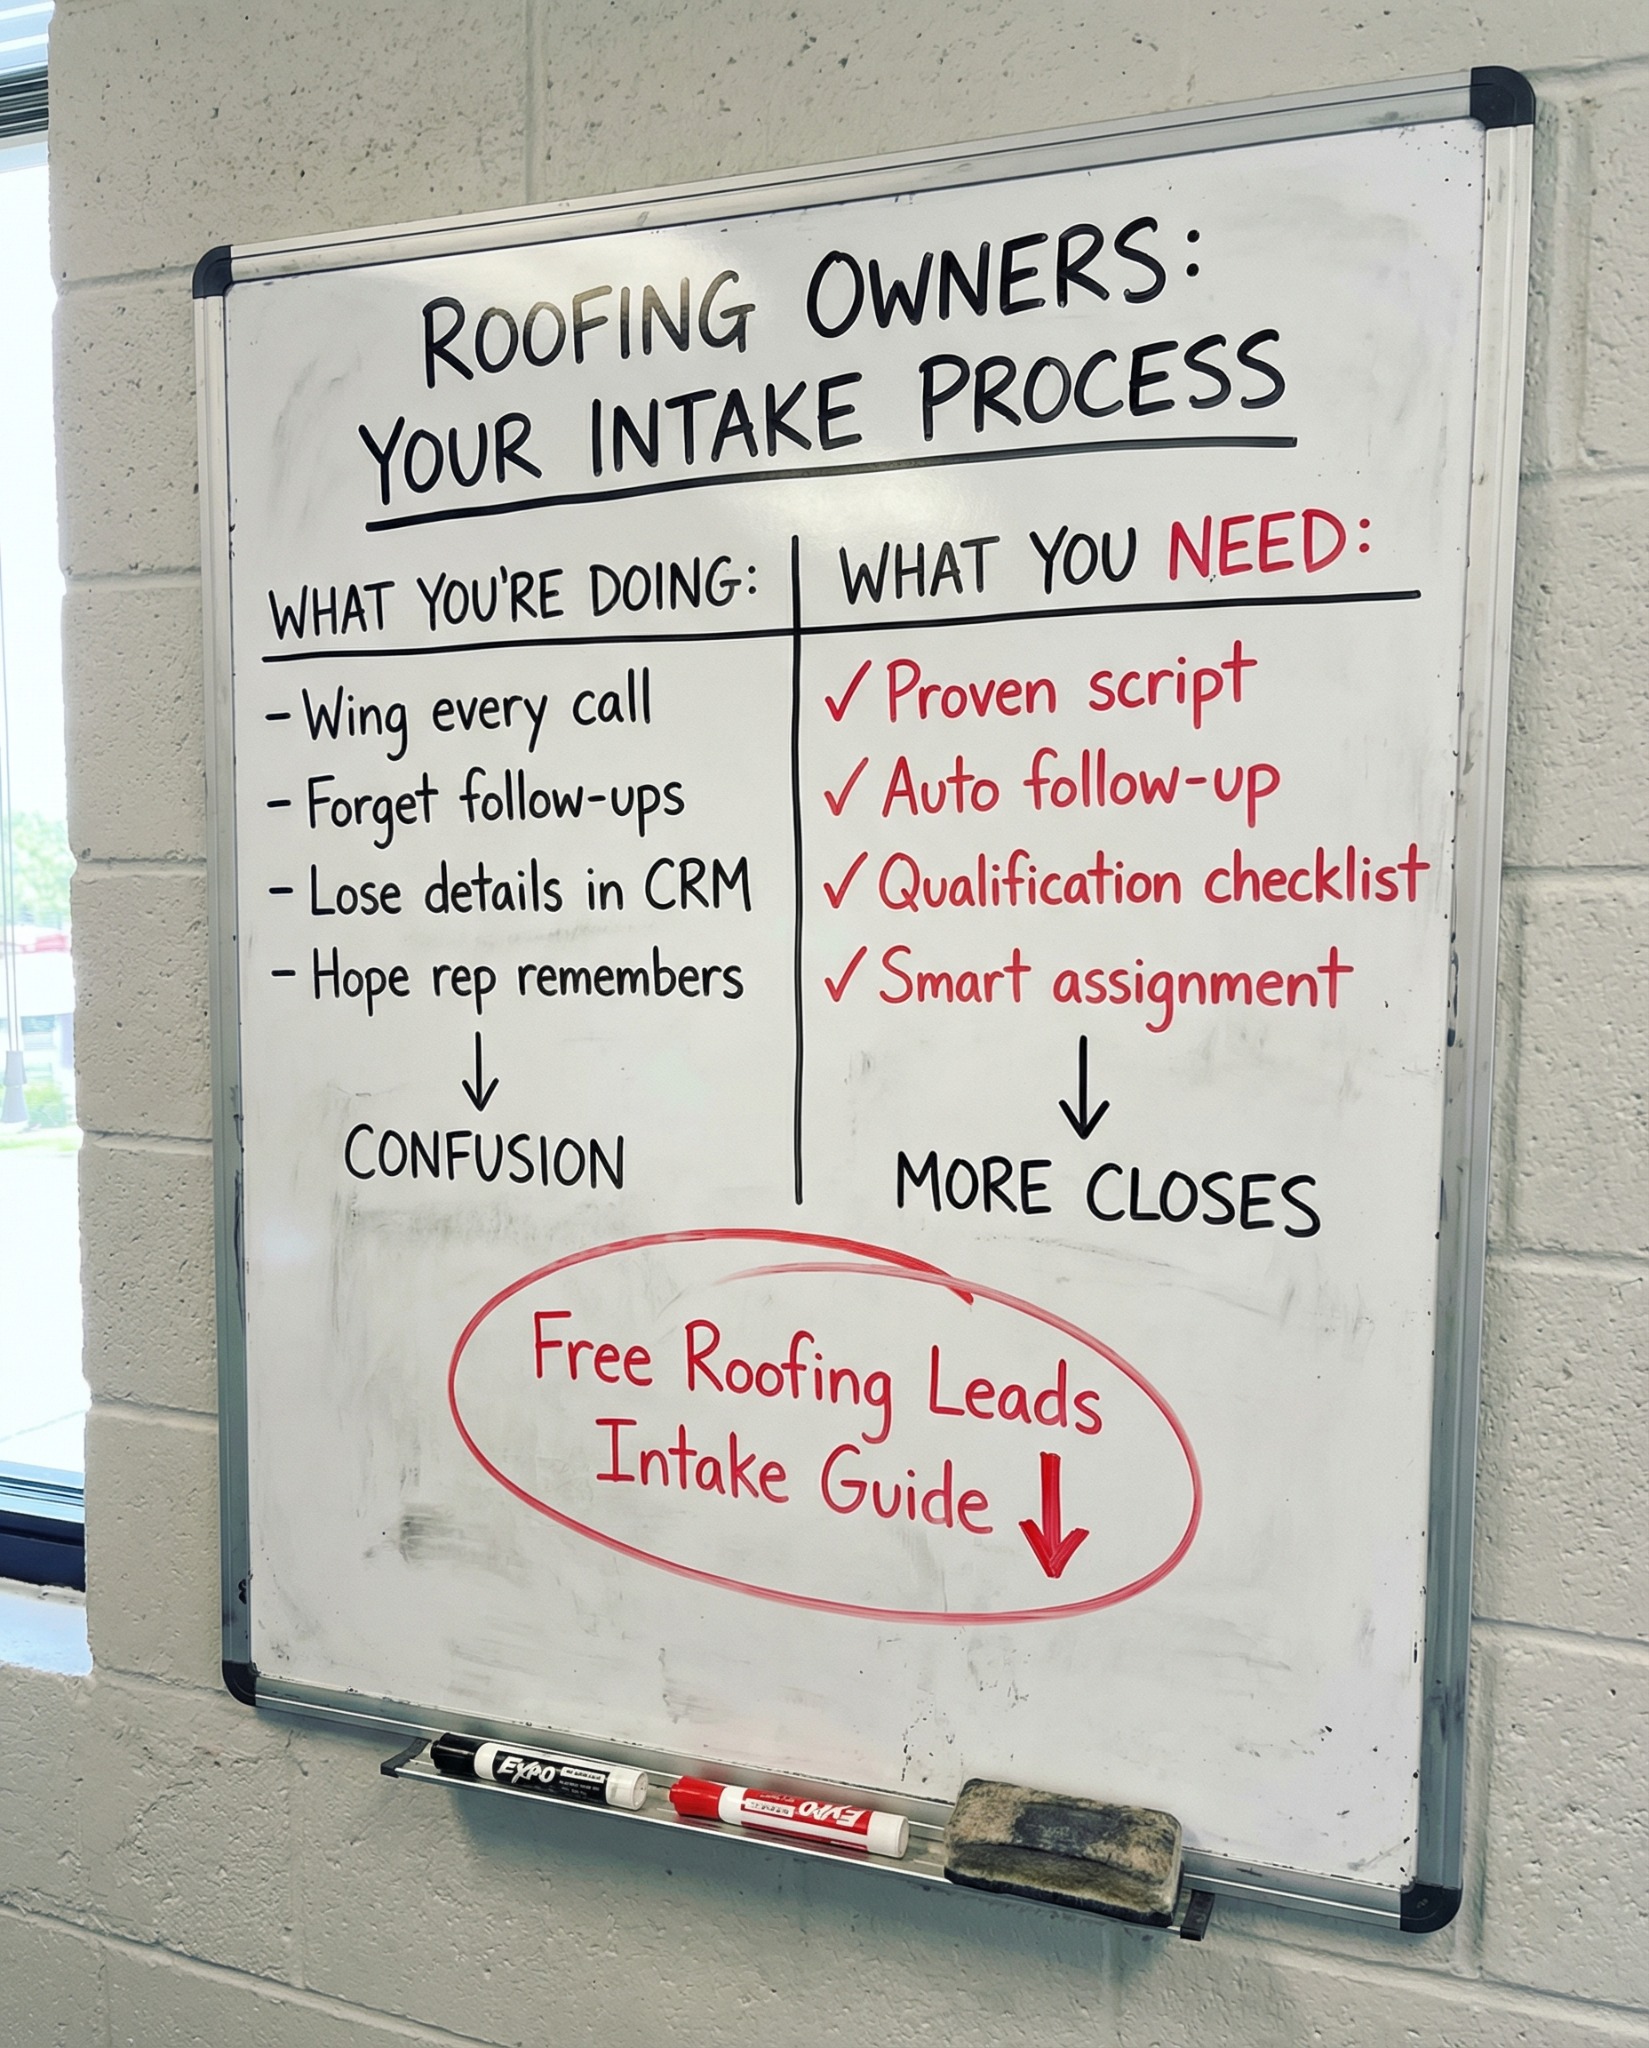 ROOFING OWNERS:
YOUR INTAKE PROCESS
WHAT YOU'RE DOING:
- Wing every call
- Forget follow-ups
- Lose details in CRM
- Hope rep remembers
↓
CONFUSION
WHAT YOU NEED:
✓ Proven script
✓ Auto follow-up
✓ Qualification checklist
✓ Smart assignment
↓
MORE CLOSES
Free Roofing Leads
Intake Guide ↓
EXPO
EXPO